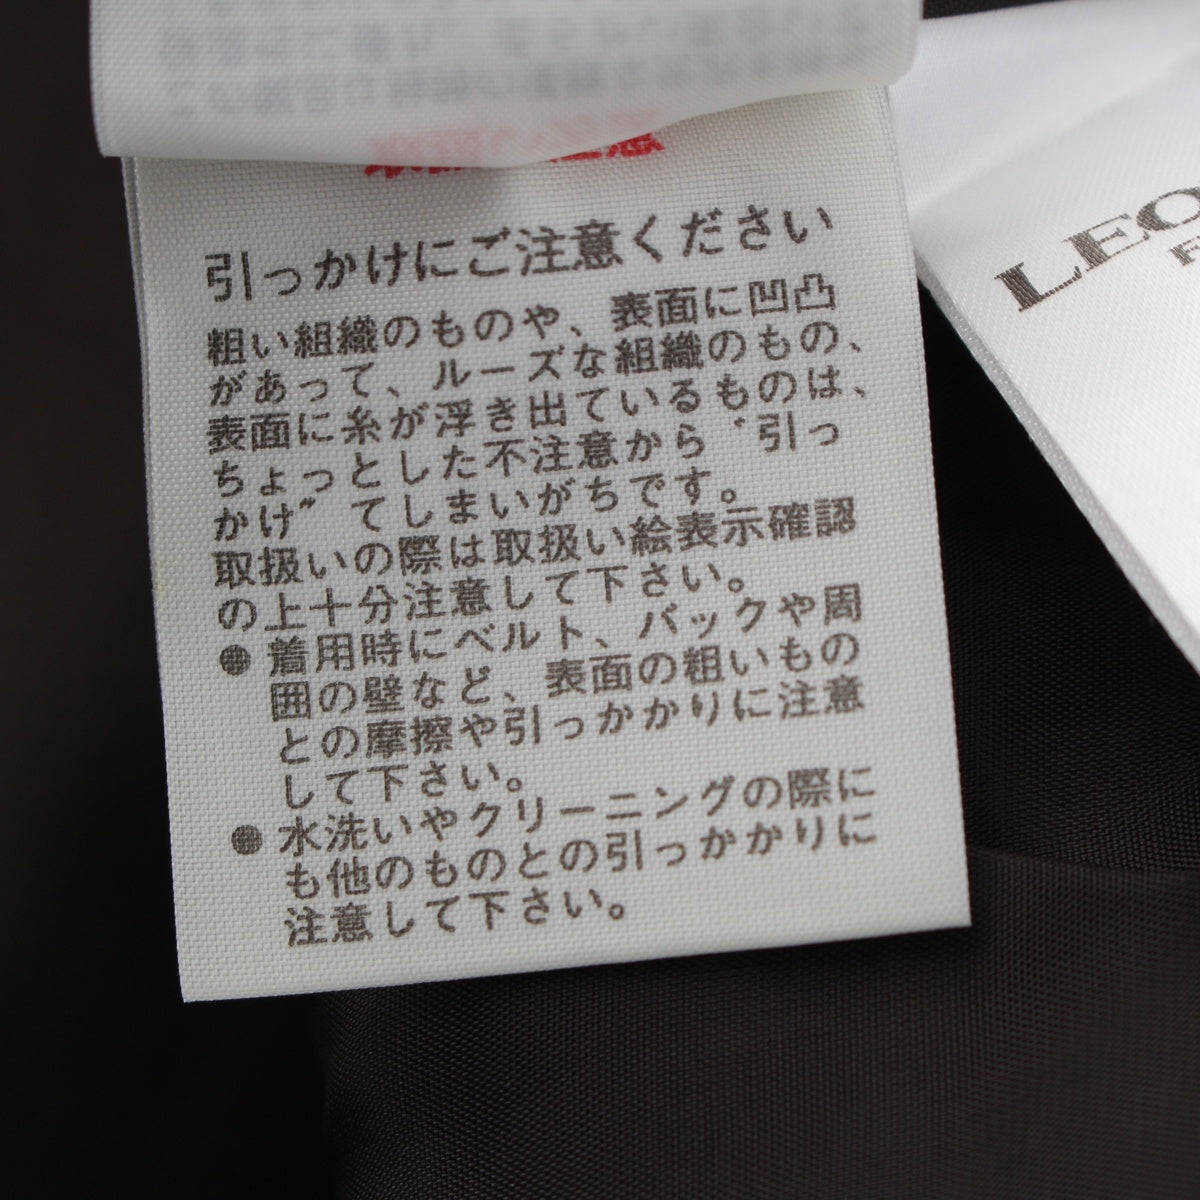 引っかけにご注意ください
粗い組織のものや、表面に凹凸
があって、ルーズな組織のもの、
表面に糸が浮き出ているものは、
ちょっとした不注意から〝引っ
かけ〞てしまいがちです。
取扱いの際は取扱い絵表示確認
の上十分注意して下さい。
● 着用時にベルト、バックや周
囲の壁など、表面の粗いもの
との摩擦や引っかかりに注意
して下さい。
● 水洗いやクリーニングの際に
も他のものとの引っかかりに
注意して下さい。
LEO